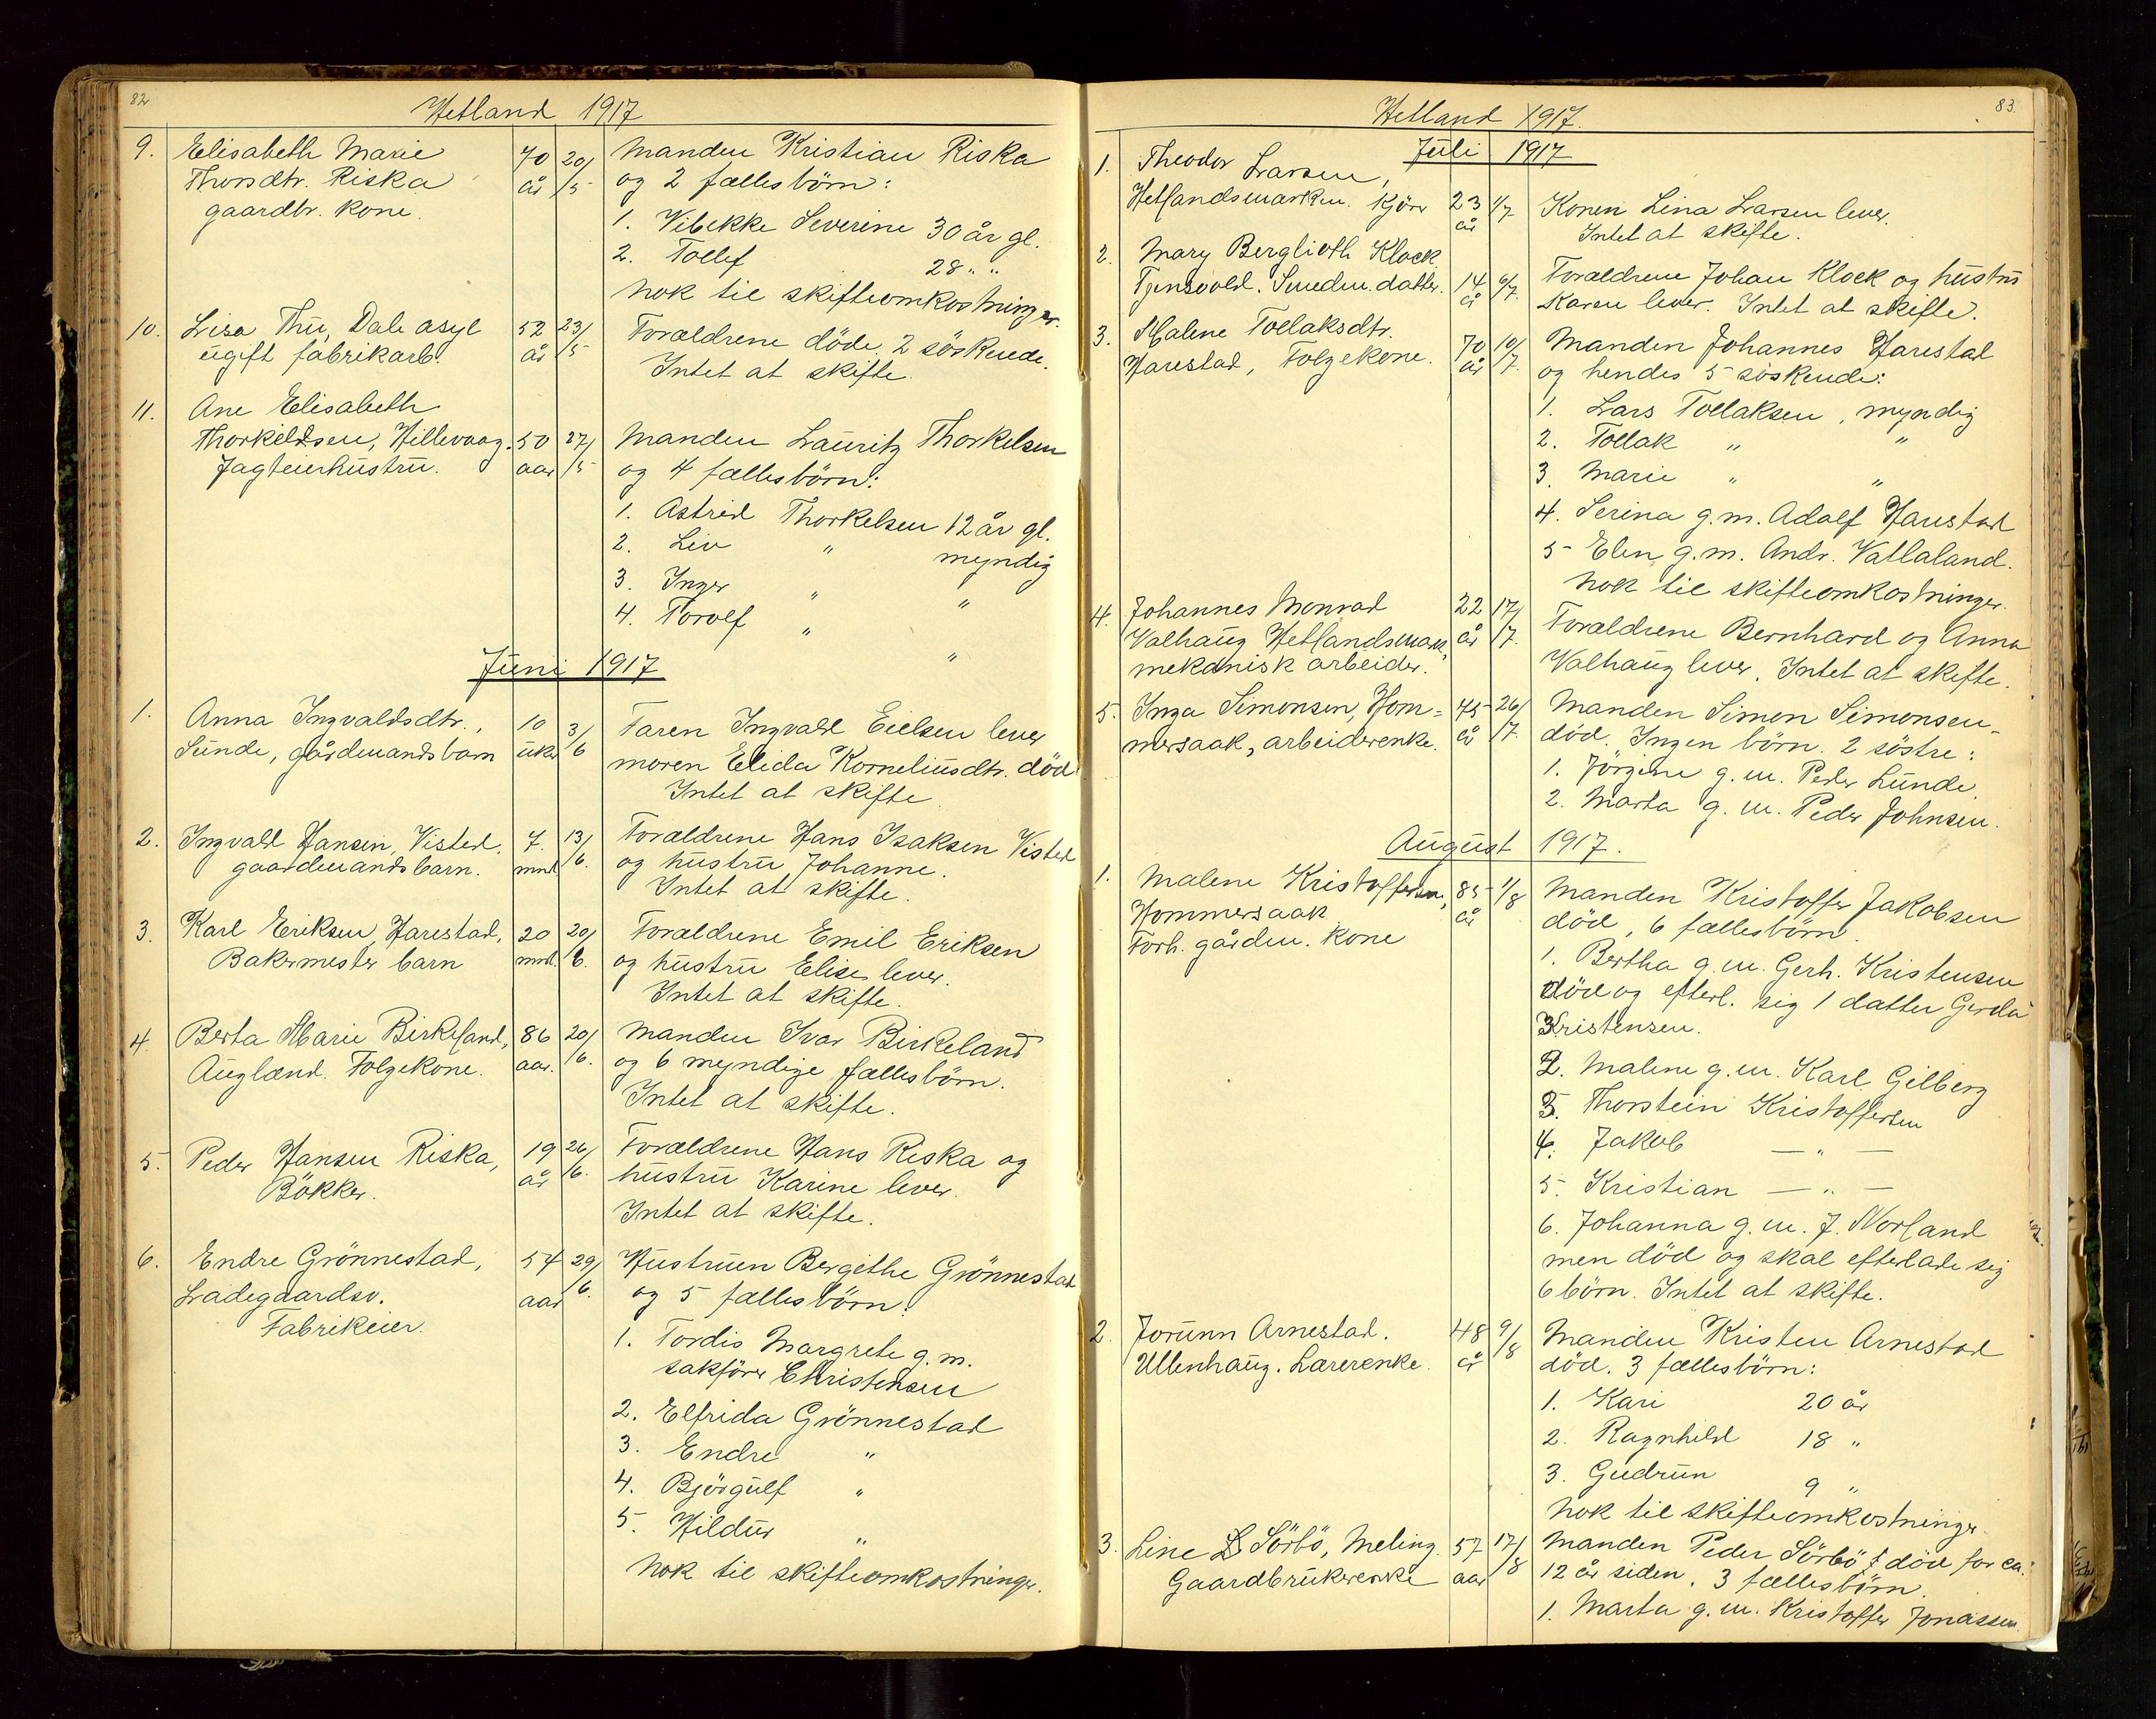 82.
Hetland 1917
9. Elisabeth Marie 70 20/ Manden Kristian Riska
Thorsdtr. Riska år /5 og 2 fællesbörn:
gaardbr. kone.
1. Vibekke Severine 30 år gl.
2. Tollef 28 " "
Nok til skifteomkostninger.
10. Lisa Thu, Dale asyl 52 23/ Forældrene döde, 2 söskende.
ugift fabrikarb. år /5 Intet at skifte.
11. Ane Elisabeth
Thorkeldsen, Hillevaag. 50 27/ Manden Lauritz Thorkelsen
Jagteierhustru. aar /5 og 4 fællesbörn:
1. Astrid Thorkelsen 12 år gl.
2. Liv " myndig
3. Inger " "
4. Torolf " "
Juni 1917
1. Anna Ingvaldsdtr., 10 3/ Faren Ingvald Eielsen lever
Sunde, gårdmandsbarn uker /6 moren Elida Korneliusdtr. död
Intet at skifte.
2. Ingvald Hansen, Visted, 7. 13/ Forældrene Hans Isaksen Visted
gaardmandsbarn. mnd. /6. og hustru Johanne.
Intet at skifte.
3. Karl Eriksen, Harestad, 20 20/ Forældrene Emil Eriksen
Bakermester barn mnd. /6. og hustru Elise lever.
Intet at skifte.
4. Berta Marie Birkeland, 86 20/ Manden Ivar Birkeland
Augland. Folgekone. aar. /6. og 6 myndige fællesbörn.
Intet at skifte.
5. Peder Hansen Riska, 19 26/ Forældrene Hans Riska og
Bökker. år /6. hustru Karine lever.
Intet at skifte.
6. Endre Grönnestad, 54 29/ Hustruen Bergithe Grönnestad
Ladegaardsv. aar /6. og 5 fællesbörn:
Fabrikeier.
1. Tordis Margrete g.m.
sakförer Christensen
2. Elfrida Grönnestad
3. Endre "
4. Björgulf "
5. Hildur "
Nok til skifteomkostninger.
83.
Hetland 1917.
Juli 1917
1. Theodor Larsen,
Hetlandsmarken. Kjörer 23 år 1/7 Konen Lina Larsen lever.
Intet at skifte.
2. Mary Berglioth Klock
Tjensvold. Smeden. datter. 14 år 6/7. Forældrene Johan Klock og hustru
Karen lever. Intet at skifte.
3. Malene Tollaksdtr.
Harestad, Folgekone. 70 år 10/7. Manden Johannes Harestad
og hendes 5 söskende:
1. Lars Tollaksen, myndig
2. Tollak " "
3. Marie " "
4. Serina g.m. Adolf Harestad
5 Elen g.m. Andr. Vatlaland.
Nok til skifteomkostninger.
4. Johannes Monrad 22 17/
Valhaug Hetlandsmark, år /7. Forældrene Bernhard og Anna
mekanisk arbeider. Valhaug lever. Intet at skifte.
5. Inga Simonsen, Hom= 75 26/ Manden Simon Simonsen
mersaak, arbeiderenke. år /7. död. Ingen börn. 2 söstre:
1. Jörgine g.m. Peder Lunde.
2. Marta g.m. Peder Johnsen.
August 1917.
1. Malene Kristoffersen, 85 1/8 Manden Kristoffer Jakobsen
Hommersaak år död, 6 fællesbörn.
Forh. gården. kone
1. Bertha g.m. Gerh. Kristensen
död og efterl. sig 1 datter Gerda
Kristensen.
2. Malene g.m. Karl Gilberg
3. Thorstein Kristoffersen
4. Jakob — " —
5. Kristian — " —
6. Johanna g.m. J. Norland
men död og skal efterlade sig
6 börn. Intet at skifte.
2. Jorunn Arnestad. 48 9/8 Manden Kristen Arnestad
Ullenhaug. Lærerenke. år död. 3 fællesbörn:
1. Kari 20 år
2. Ragnhild 18 "
3. Gudrun 9 "
Nok til skifteomkostninger.
3. Line Sörbö, Meling. 57 17/ Manden Peder Sörbö död for ca.
Gaardbrukerenke aar /8 12 år siden. 3 fællesbörn.
1. Marta g.m. Kristoffer Jonassen.